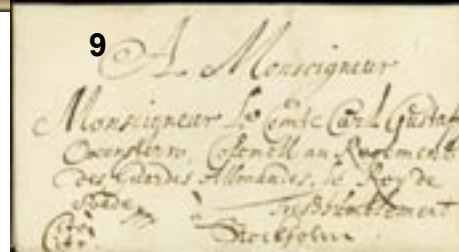 9
A Monseigneur
Monseigneur Le Comte Carl Gustaf
Oxenstern, Collonell au Regiment
des Guardes Allmandes, le Roy de
Suede
à
Stockholm